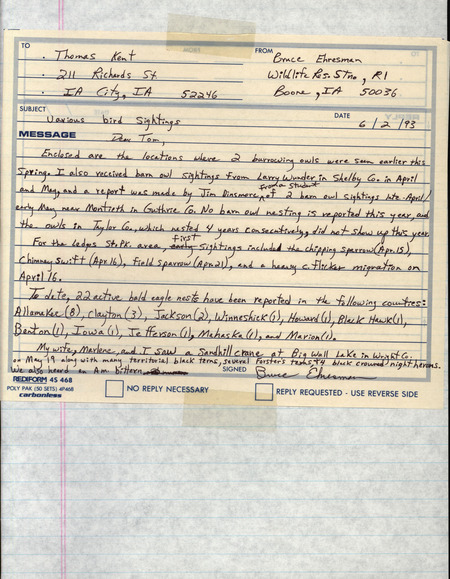 TO
FROM
Thomas Kent
Bruce Ehresman
211 Richards St
Wildlife Res. Stn., R1
IA City, IA 52246
Boone, IA 50036
SUBJECT
Various bird sightings
DATE 6/2/93
MESSAGE
Dear Tom,
Enclosed are the locations where 2 burrowing owls were seen earlier this
Spring. I also received barn owl sightings from Larry Wunder in Shelby Co. in April
and May, and a report was made by Jim Dinsmore from a student of 2 barn owl sightings late April/
early May near Monteith in Guthrie Co. No barn owl nesting is reported this year, and
the owls in Taylor Co., which nested 4 years consecutively, did not show up this year.
For the Ledges St. Pk. area, first sightings included the chipping sparrow (Apr. 15),
Chimney swift (Apr 16), Field sparrow (Apr 21), and a heavy c. flicker migration on
April 16.
To date, 22 active bald eagle nests have been reported in the following counties:
Allamakee (8), Clayton (3), Jackson (2), Winneshiek (1), Howard (1), Black Hawk (1),
Benton (1), Iowa (1), Jefferson (1), Mahaska (1), and Marion (1).
My wife, Marlene, and I saw a Sandhill crane at Big Wall Lake in Wright Co.
on May 19 along with many territorial black terns, several forsters terns, & 4 black crowned night herons.
We also heard an Am. bittern
SIGNED Bruce Ehresman
REDIFORM 4S 468
POLY PAK (50 SETS) 4P468
carbonless
NO REPLY NECESSARY
REPLY REQUESTED - USE REVERSE SIDE